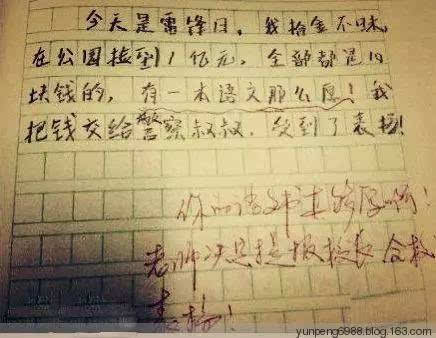 今天是雷锋日，我拾金不昧，
在公园捡到1亿元，全部都是10
块钱的，有一本语文那么厚！我
把钱交给警察叔叔，受到了表扬！
你的语文书太厚啊！
老师决定提报校长 全校
表扬！
yunpeng6988.blog.163.com